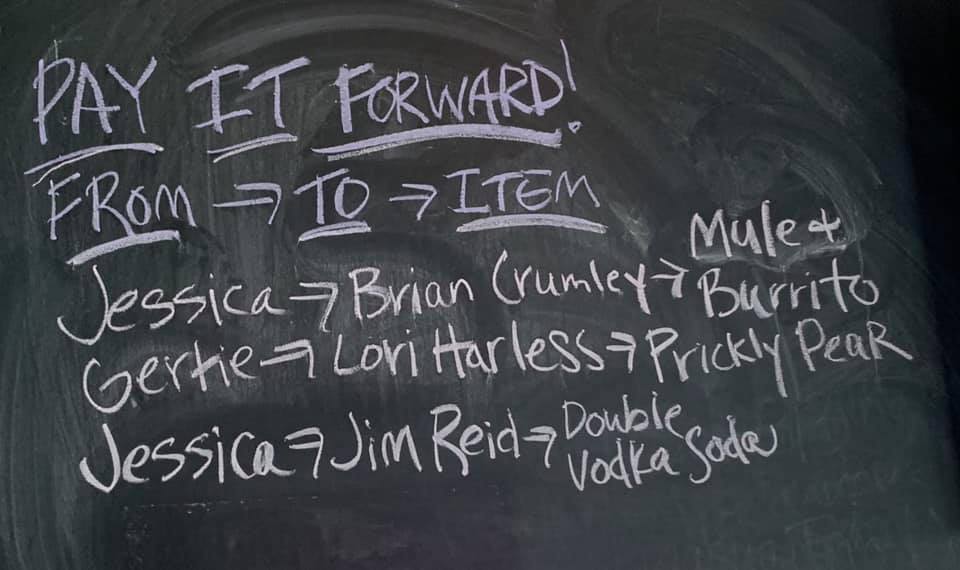 PAY IT FORWARD!
FROM → TO → ITEM
Jessica → Brian Crumley → Mule + Burrito
Gertie → Lori Harless → Prickly Pear
Jessica → Jim Reid → Double Vodka Soda